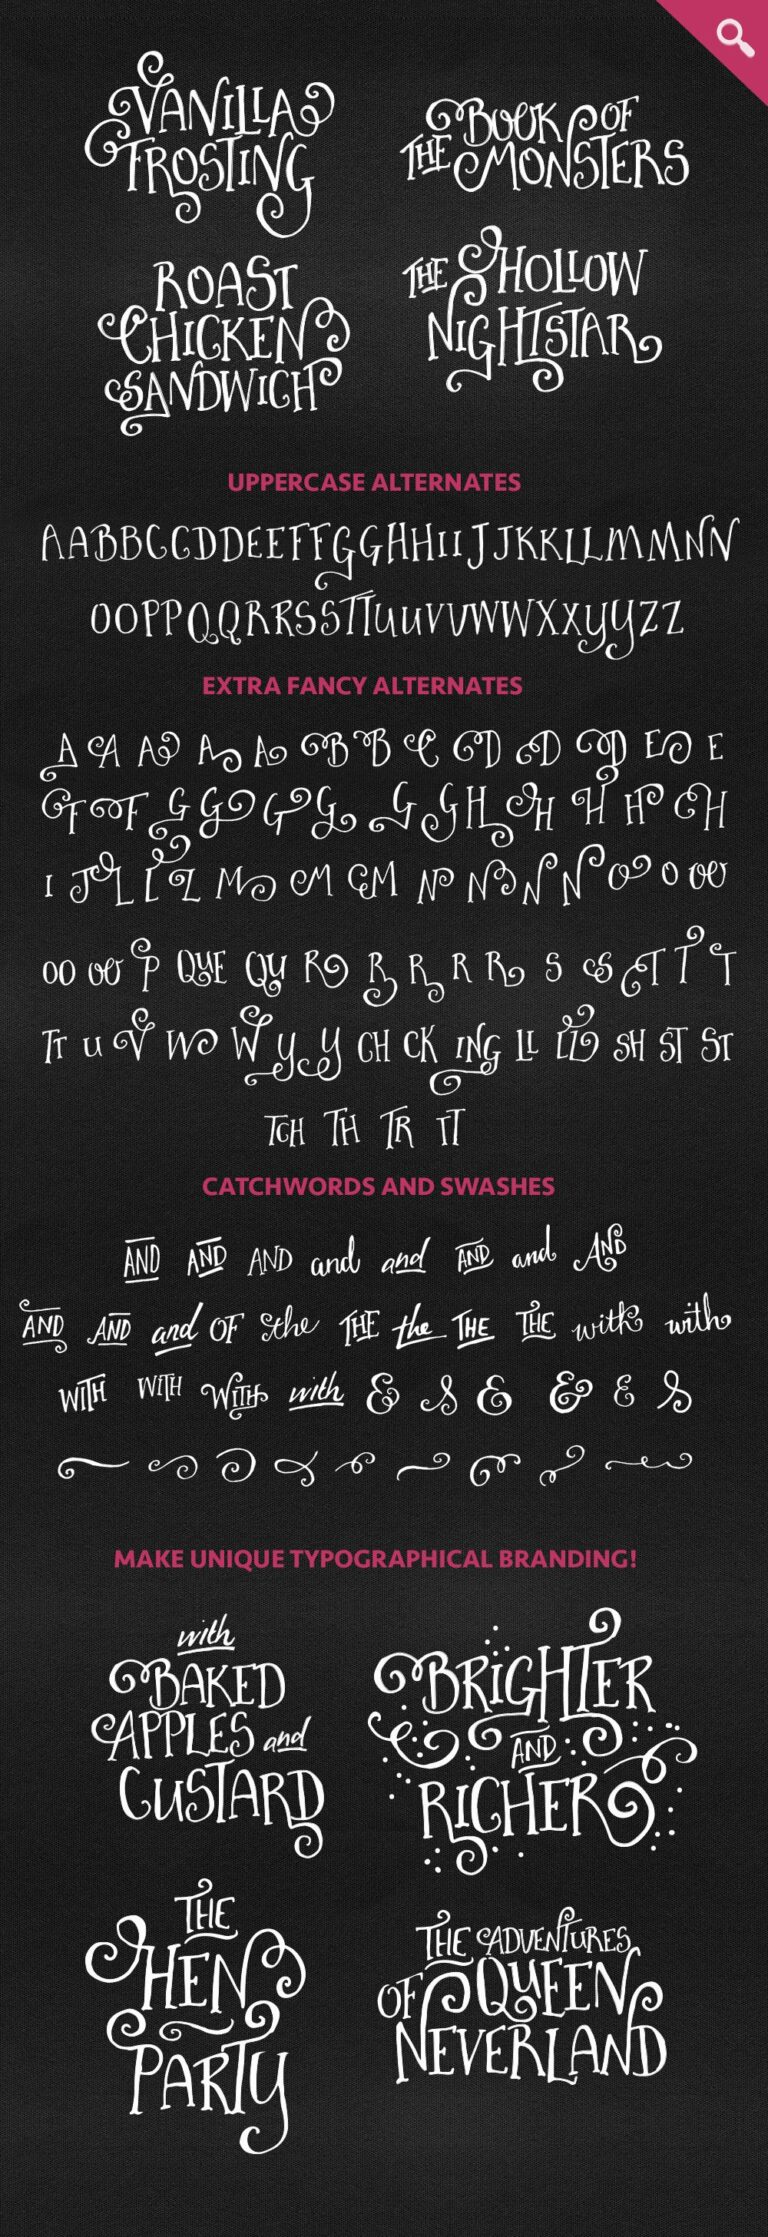 VANILLA
FROSTING
THE BOOK OF
MONSTERS
ROAST
CHICKEN
SANDWICH
THE HOLLOW
NIGHTSTAR
UPPERCASE ALTERNATES
AABBCCDDEEFFGGHHIIJJKKLLMMNN
OOPPQQRRSSTTUUVVWWXXYYZZ
EXTRA FANCY ALTERNATES
A A A A A B B C D D D E E
F F G G G G G G H H H H H
I J L L L M M M N N N N O O OO
OO OO P QUE QU R R R R R S S T T T
TT U V W W Y Y CH CK ING LL LL SH ST ST
TCH TH TR TT
CATCHWORDS AND SWASHES
AND AND AND and and AND and AND
AND AND and OF the THE the THE THE with with
WITH WITH WITH with & & & & & &
MAKE UNIQUE TYPOGRAPHICAL BRANDING!
with
BAKED
APPLES and
CUSTARD
BRIGHTER
AND
RICHER
THE
HEN
PARTY
THE ADVENTURES
OF QUEEN
NEVERLAND